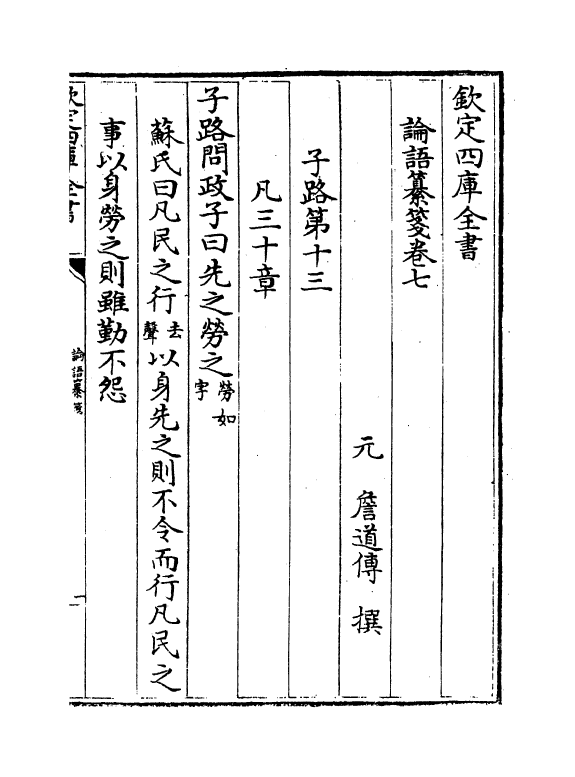 欽定四庫全書
論語纂箋卷七
元 詹道傳 撰
子路第十三
凡三十章
子路問政子曰先之勞之勞如字
蘇氏曰凡民之行去聲以身先之則不令而行凡民之
事以身勞之則雖勤不怨
欽定四庫全書
論語纂箋
一